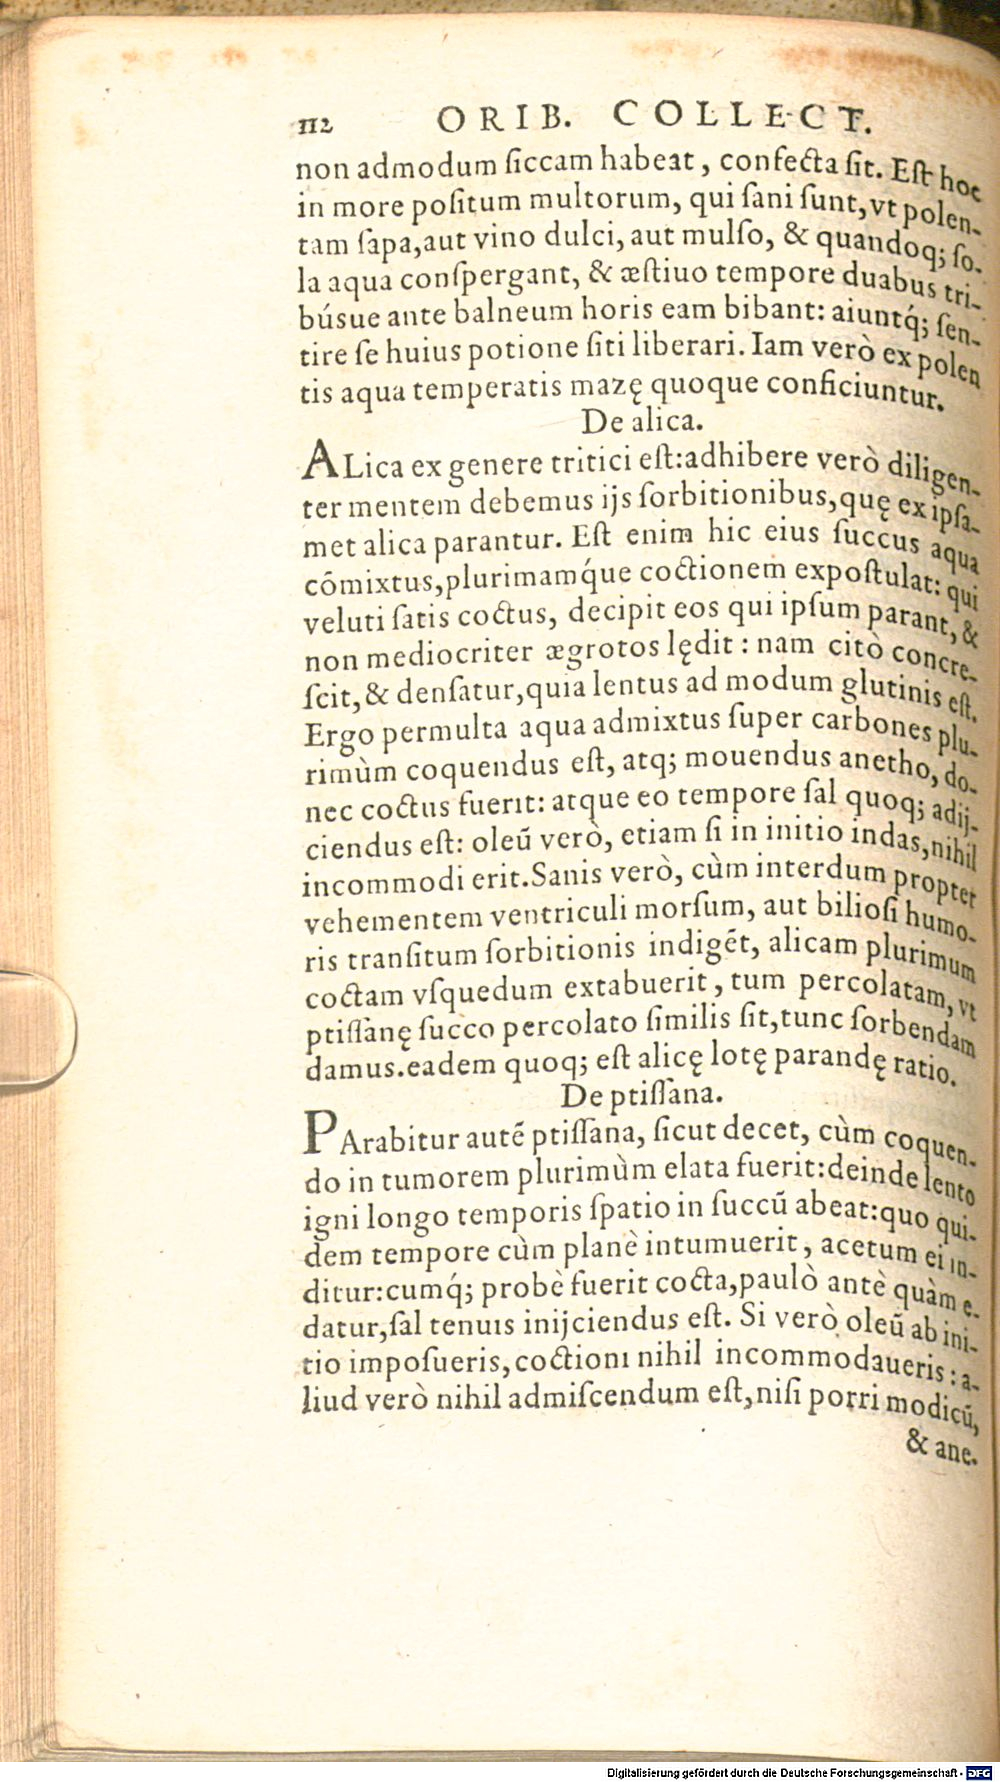 112 ORIB. COLLECT.
non admodum ſiccam habeat, confecta ſit. Eſt hoc
in more poſitum multorum, qui ſani ſunt, vt polen-
tam ſapa, aut vino dulci, aut mulſo, & quandoq; ſo-
la aqua conſpergant, & æſtiuo tempore duabus tri-
búsue ante balneum horis eam bibant: aiuntq́; ſen-
tire ſe huius potione ſiti liberari. Iam verò ex polen
tis aqua temperatis mazę quoque conficiuntur.
De alica.
ALica ex genere tritici eſt: adhibere verò diligen-
ter mentem debemus ijs ſorbitionibus, quę ex ipſa-
met alica parantur. Eſt enim hic eius ſuccus aqua
cõmixtus, plurimamq́ue coctionem expoſtulat: qui
veluti ſatis coctus, decipit eos qui ipſum parant, &
non mediocriter ægrotos lędit: nam citò concre-
ſcit, & denſatur, quia lentus ad modum glutinis eſt.
Ergo permulta aqua admixtus ſuper carbones plu-
rimùm coquendus eſt, atq; mouendus anetho, do-
nec coctus fuerit: atque eo tempore ſal quoq; adij-
ciendus eſt: oleũ verò, etiam ſi in initio indas, nihil
incommodi erit. Sanis verò, cùm interdum propter
vehementem ventriculi morſum, aut bilioſi humo-
ris tranſitum ſorbitionis indigẽt, alicam plurimum
coctam vſquedum extabuerit, tum percolatam, vt
ptiſſanę ſucco percolato ſimilis ſit, tunc ſorbendam
damus. eadem quoq; eſt alicę lotę parandę ratio.
De ptiſſana.
PArabitur autẽ ptiſſana, ſicut decet, cùm coquen-
do in tumorem plurimùm elata fuerit: deinde lento
igni longo temporis ſpatio in ſuccũ abeat: quo qui-
dem tempore cùm planè intumuerit, acetum ei in-
ditur: cumq́; probè fuerit cocta, paulò antè quàm e-
datur, ſal tenuis inijciendus eſt. Si verò oleũ ab ini-
tio impoſueris, coctioni nihil incommodaueris: a-
liud verò nihil admiſcendum eſt, niſi porri modicũ,
& ane.
Digitalisierung gefördert durch die Deutsche Forschungsgemeinschaft - DFG